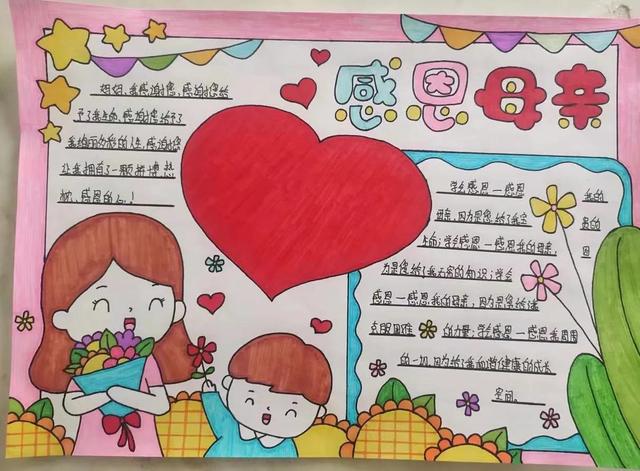 感恩母亲
妈妈,我感谢您,感谢您给
予了我生命,感谢您给予了
我绚丽多彩的人生,感谢您
让我拥有了一颗拼搏,热
忱,感恩的心!
学会感恩一感恩 我的
母亲,因为是您给了我宝 贵的
生命;学会感恩一感恩我的母亲, 因
为是您给了我无穷的知识;学会
感恩一感恩我的母亲,因为是您给
克服困难 的力量;学会感恩一感恩我周围
的一切,因为给了我和谐健康的成长
空间。